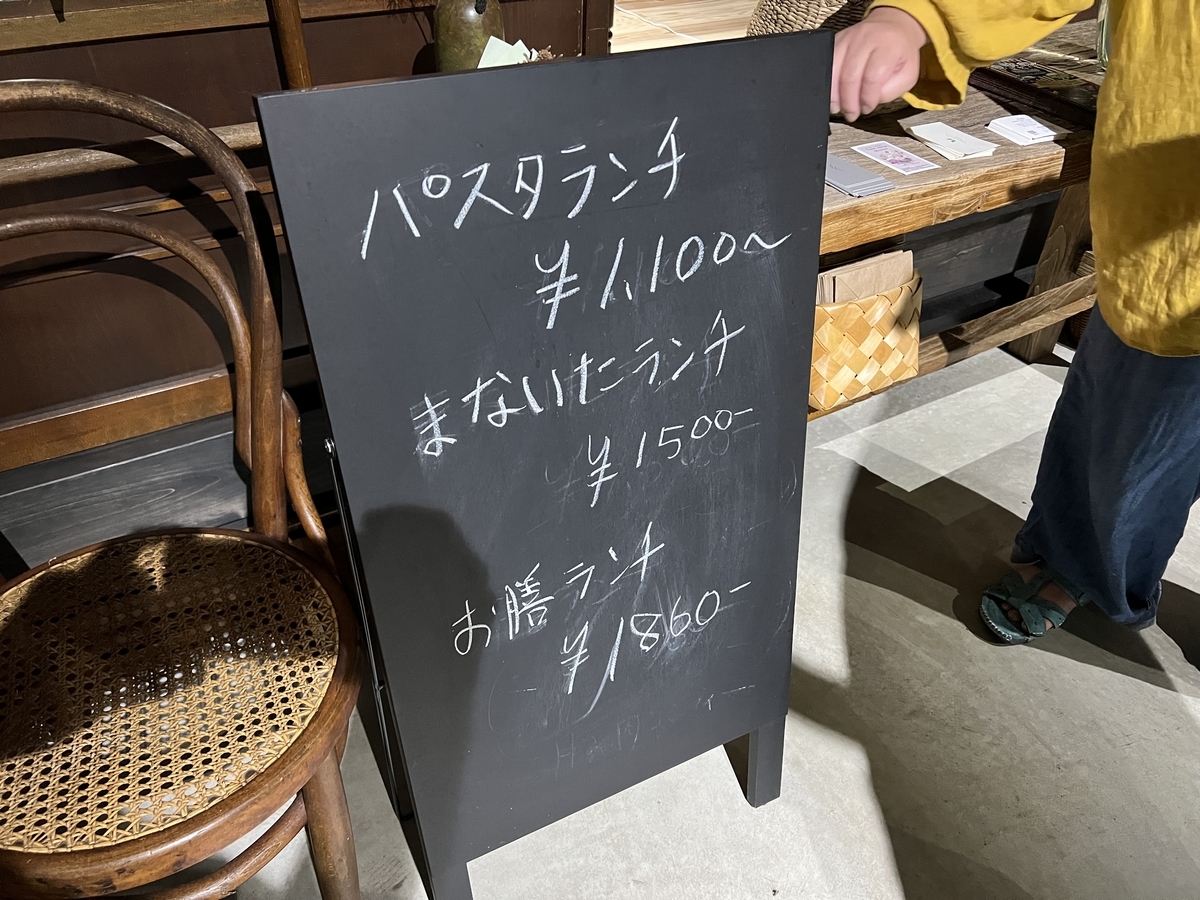 パスタランチ
¥1,100〜
まないたランチ
¥1500-
お膳ランチ
¥1860-